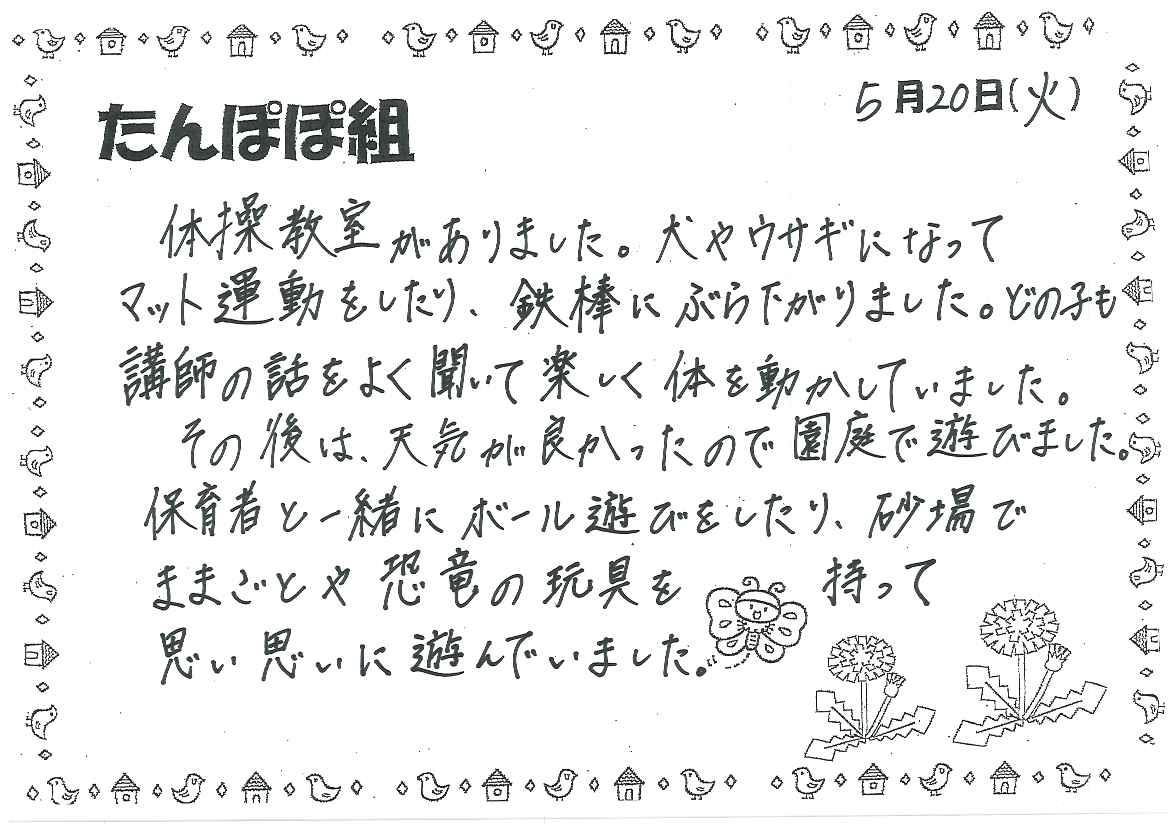 5月20日(火)
たんぽぽ組
体操教室がありました。犬やウサギになって
マット運動をしたり、鉄棒にぶら下がりました。どの子も
講師の話をよく聞いて楽しく体を動かしていました。
その後は、天気が良かったので園庭で遊びました。
保育者と一緒にボール遊びをしたり、砂場で
ままごとや恐竜の玩具を持って
思い思いに遊んでいました。